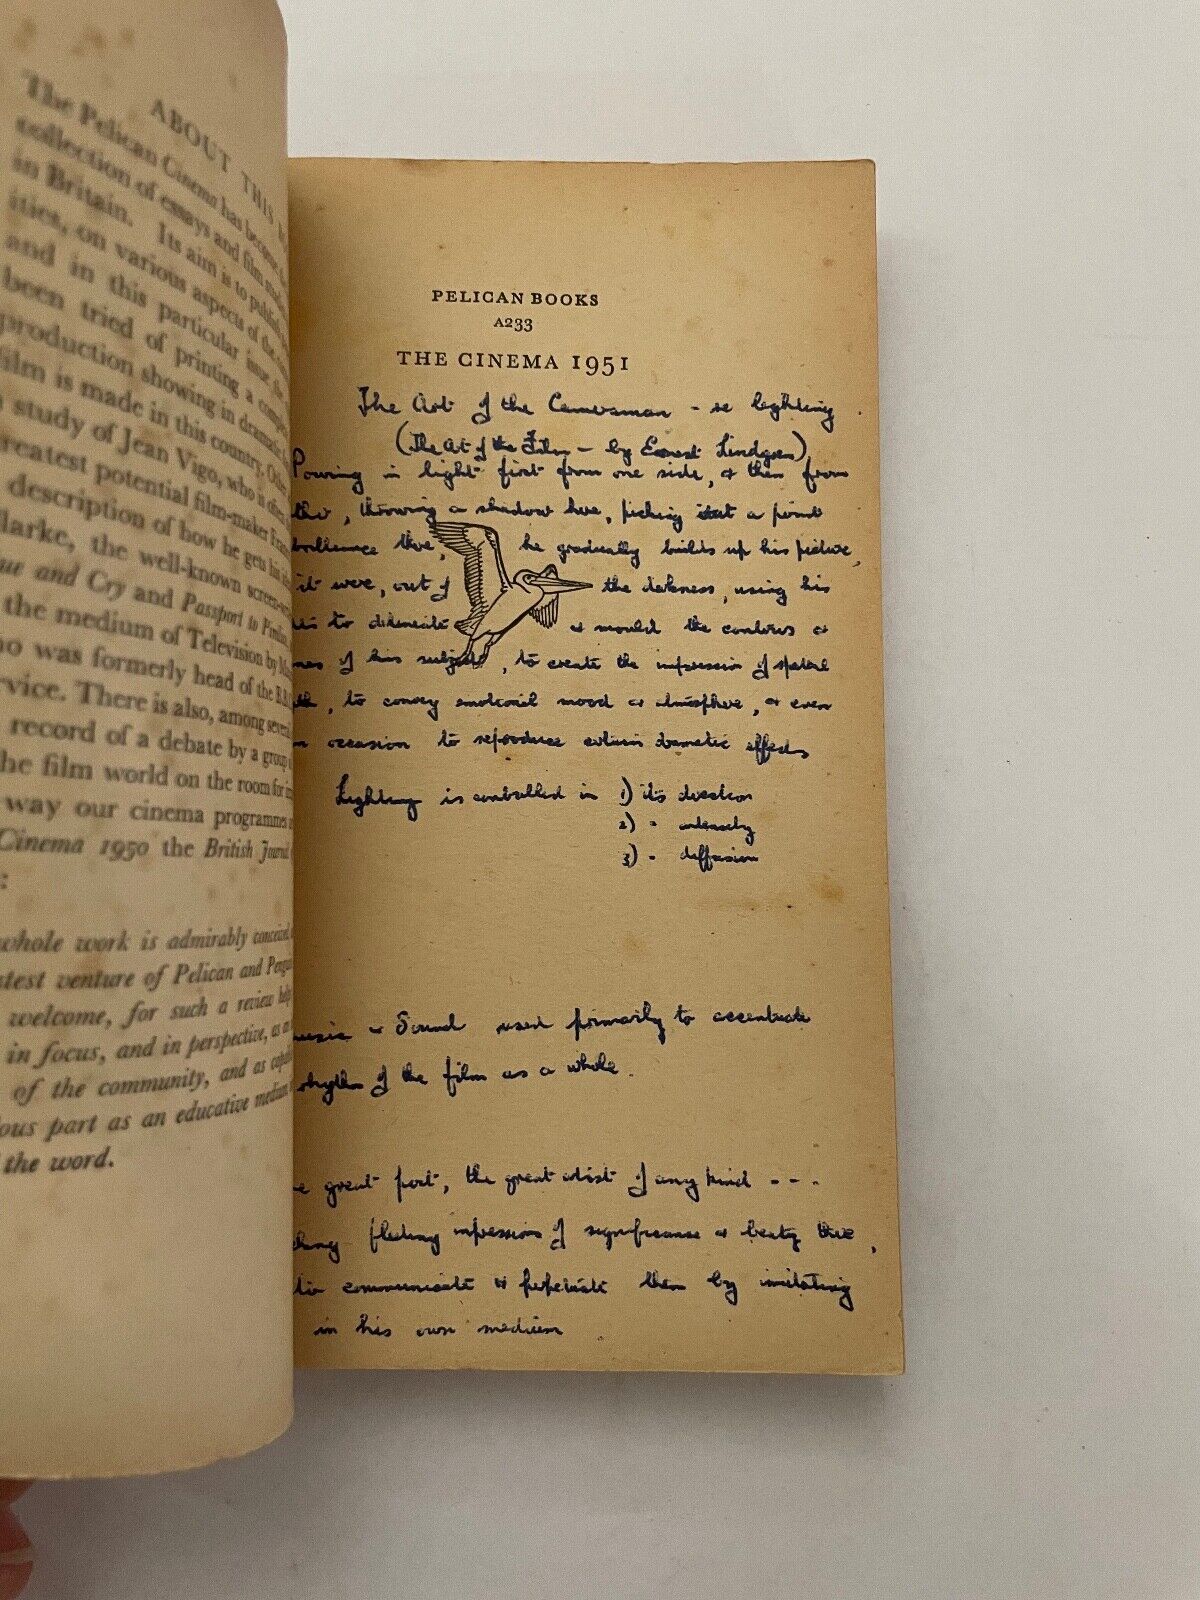 ABOUT THIS
The Pelican Cinema has become
collection of essays and film
in Britain. Its aim is to publish
ities, on various aspects of the
and in this particular issue, the
been tried of printing a
production showing in dramatic
film is made in this country. Other
study of Jean Vigo, who is often
greatest potential film-maker
description of how he gets his
larke, the well-known screen-
ue and Cry and Passport to Pimlico
the medium of Television by
ho was formerly head of the B.B.
rvice. There is also, among several
record of a debate by a group
he film world on the room for
way our cinema programmes
Cinema 1950 the British Journal
:
whole work is admirably conceived,
test venture of Pelican and Pengu
welcome, for such a review help
in focus, and in perspective, as a
of the community, and as capable
ious part as an educative medium
the word.
PELICAN BOOKS
A233
THE CINEMA 1951
The Art of the Cameraman - re lighting
(The Art of the Film - by Ernest Lindgren)
Pouring in light first from one side, & then from
ther, throwing a shadow here, picking out a point
brilliance there, he gradually builds up his picture,
it were, out of the darkness, using his
hts to delineate & mould the contours &
nes of his subject, to create the impression of spatial
th, to convey emotional mood or atmosphere, & even
n occasion to reproduce certain dramatic effects
Lighting is controlled in 1) its direction
2) " intensity
3) " diffusion
music & Sound used primarily to accentuate
rhythm of the film as a whole.
e great poet, the great artist of any kind - - .
fleeting impressions of significance & beauty there,
to communicate & perpetuate them by imitating
in his own medium